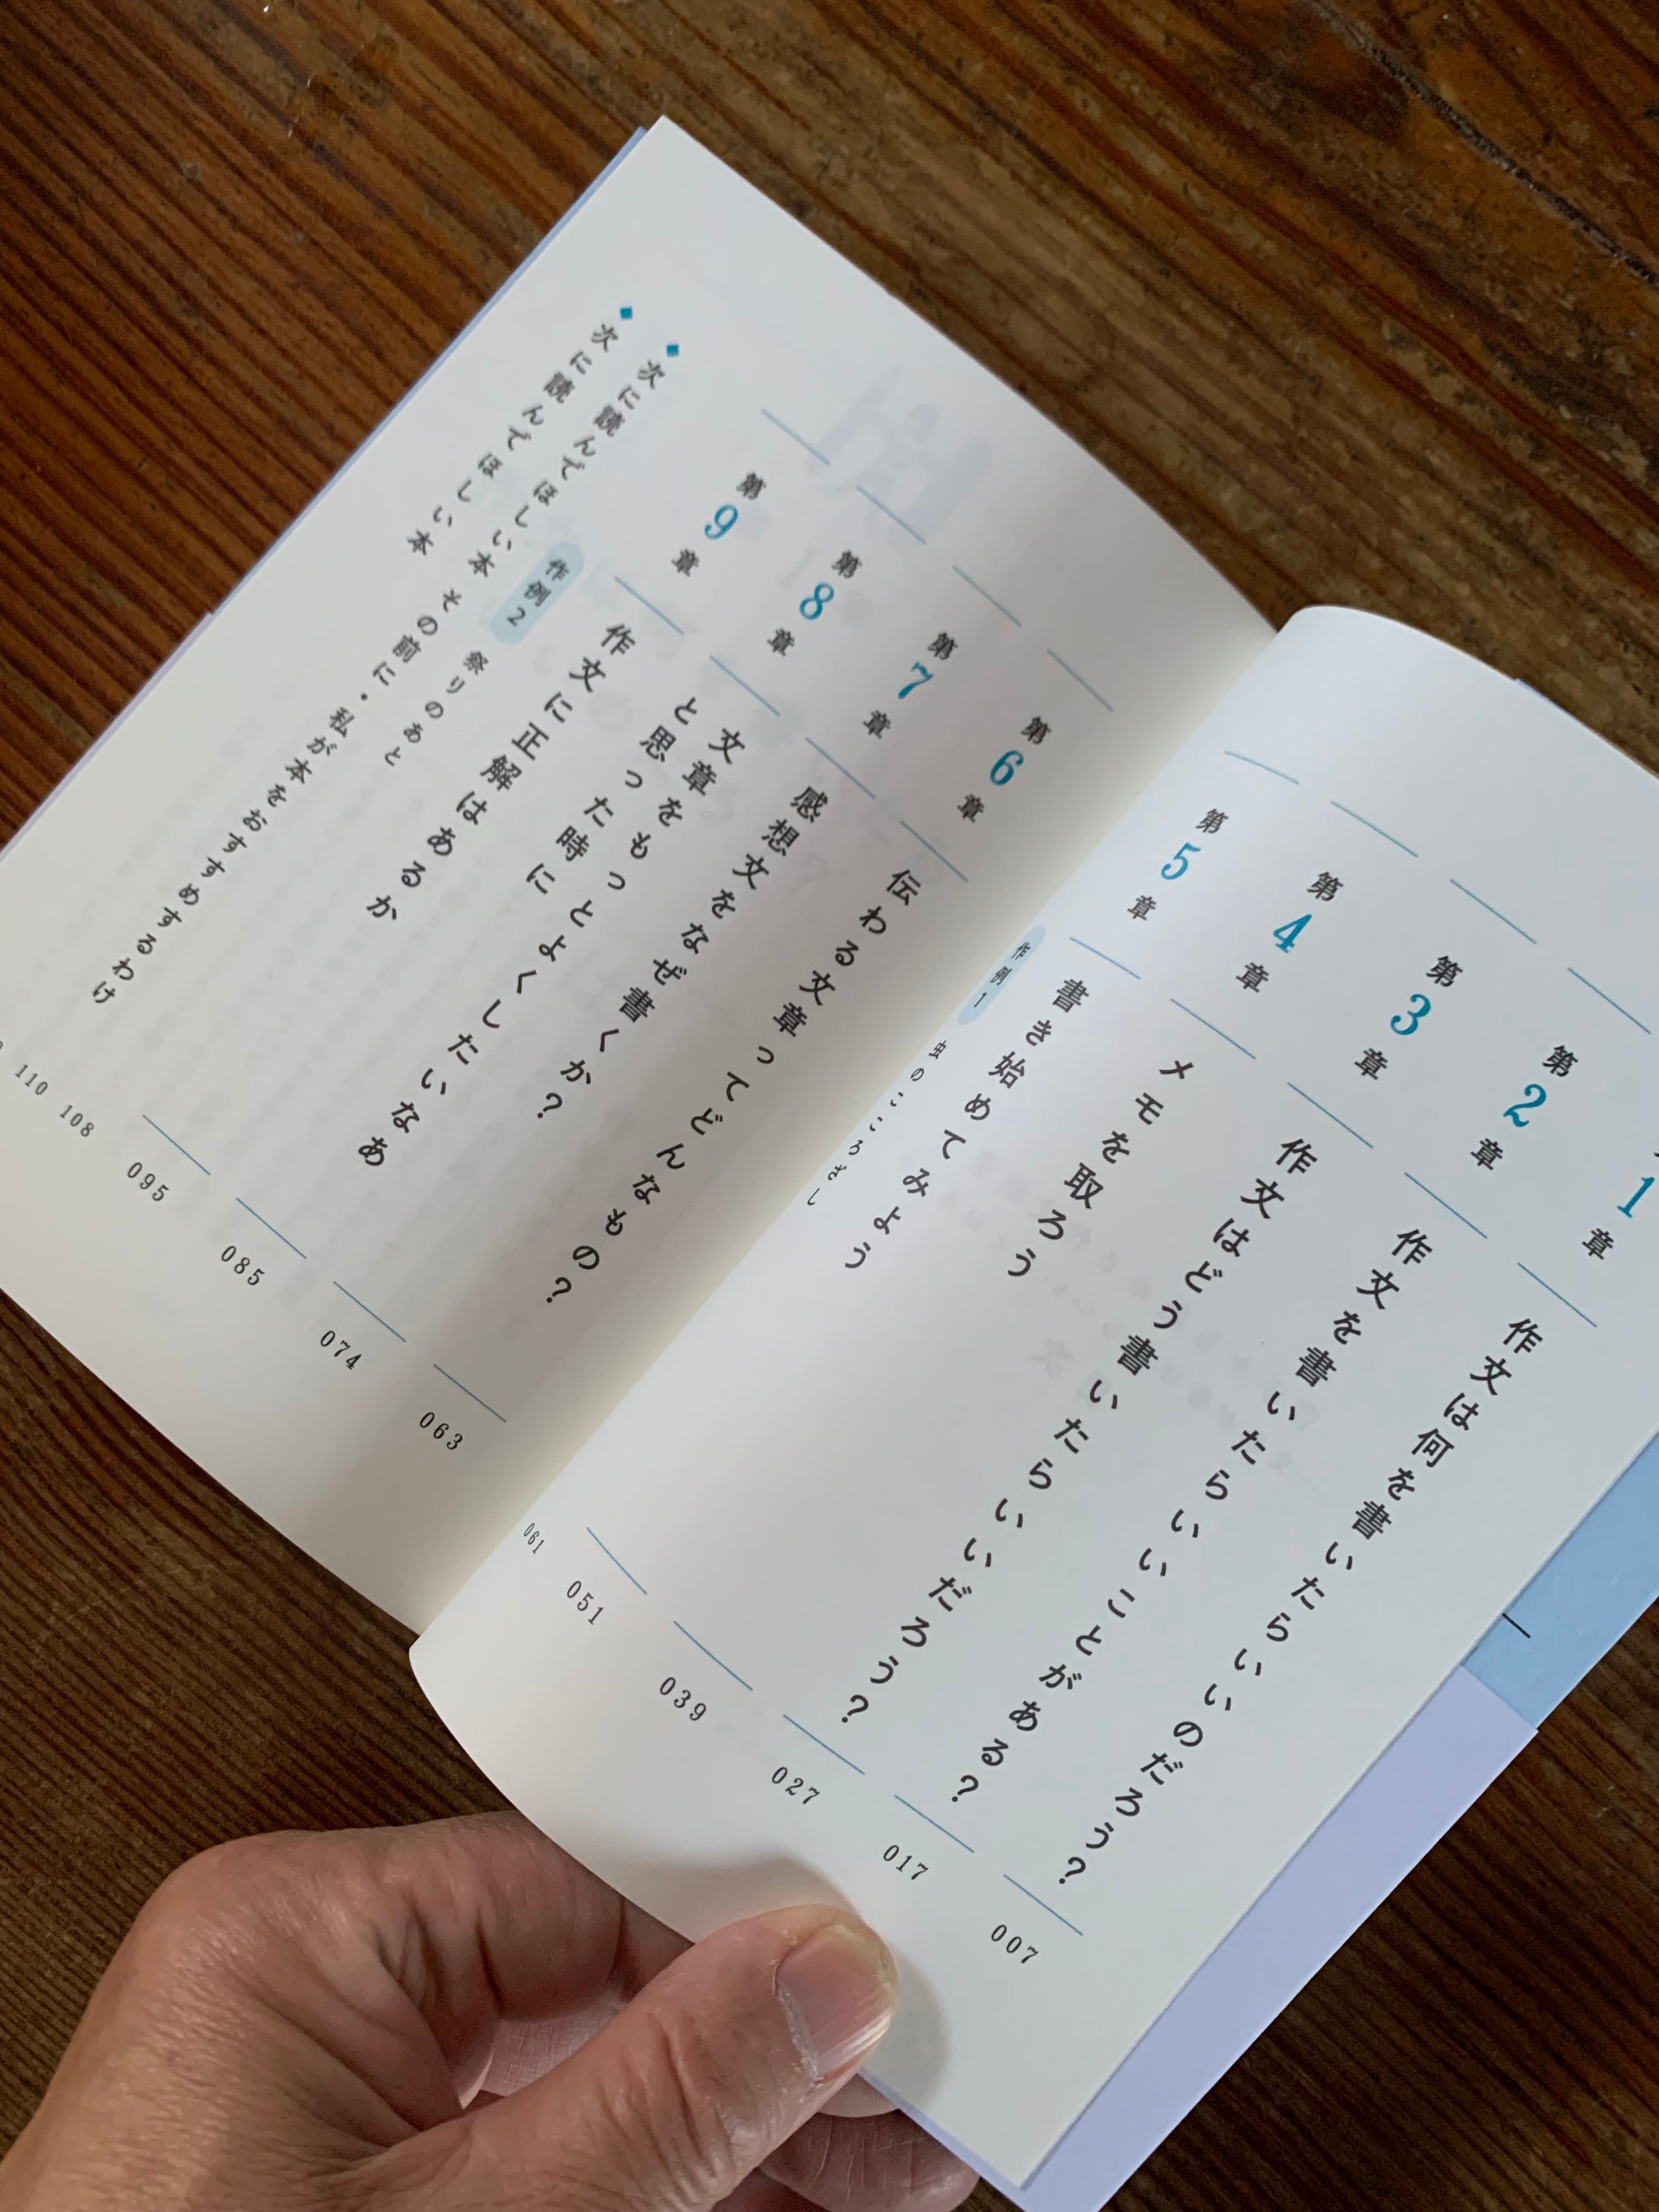 第1章 作文は何を書いたらいいのだろう? 007
第2章 作文を書いたらいいことがある? 017
第3章 作文はどう書いたらいいだろう? 027
第4章 メモを取ろう 039
第5章 書き始めてみよう 051
作例1 虫のこころざし 061
第6章 伝わる文章ってどんなもの? 063
第7章 感想文をなぜ書くか? 074
第8章 文章をもっとよくしたいなあ
と思った時に 085
第9章 作文に正解はあるか 095
作例2 祭りのあと 108
◆次に読んでほしい本 その前に・私が本をおすすめするわけ 110
◆次に読んでほしい本